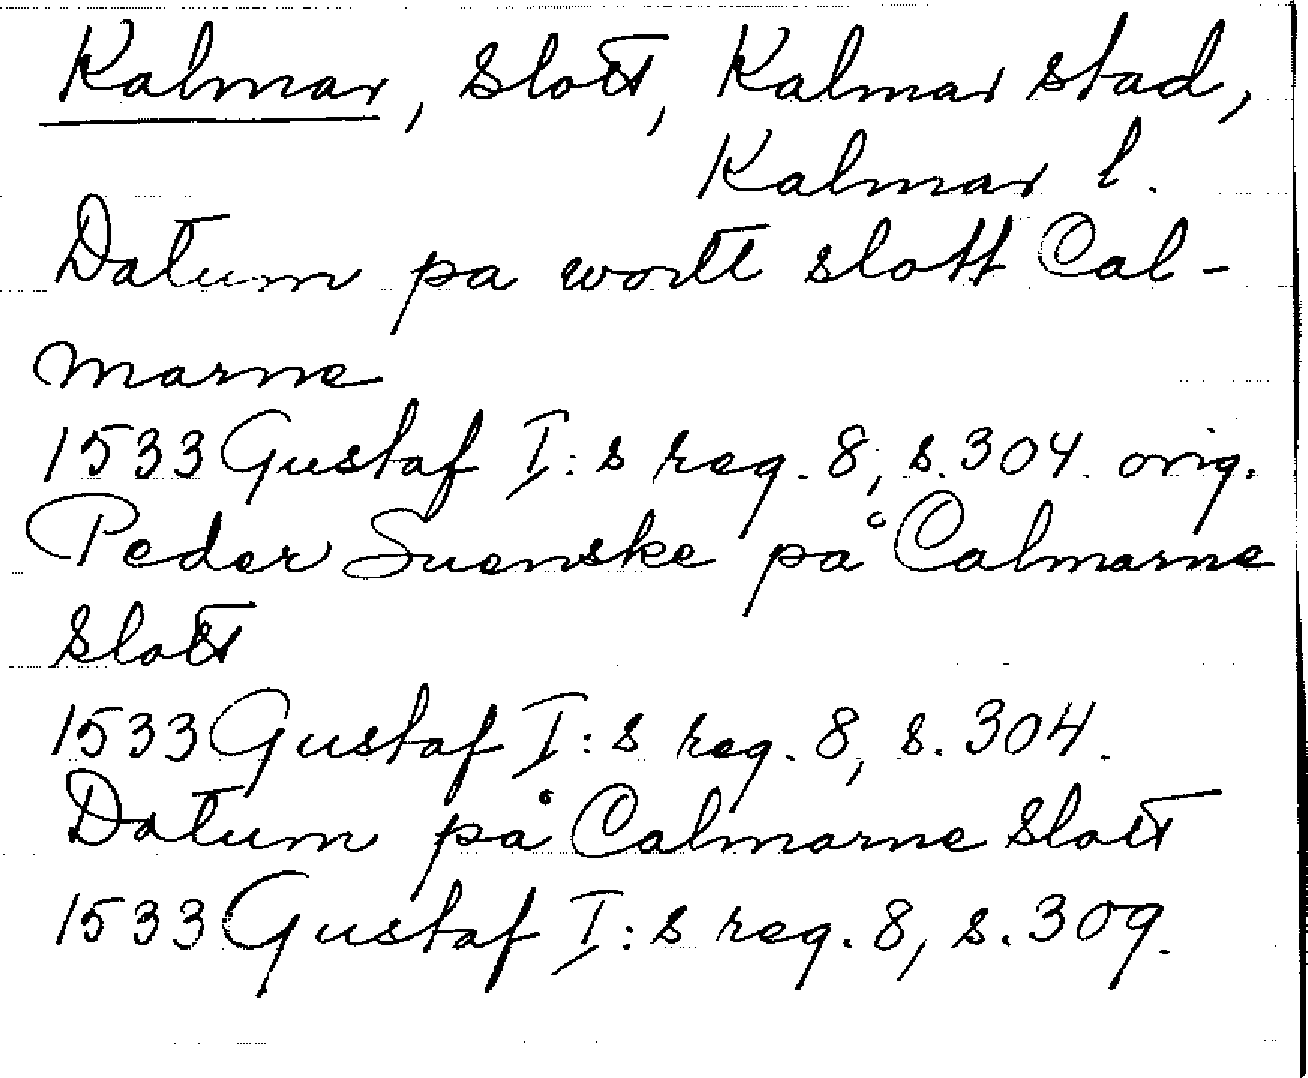 Kalmar, slott, Kalmar stad,
Kalmar l.
Datum pa wortt slott Cal-
marne
1533 Gustaf I:s reg. 8, s. 304. orig.
Peder Suenske på Calmarne
slott
1533 Gustaf I:s reg. 8, s. 304.
Datum på Calmarne slott
1533 Gustaf I:s reg. 8, s. 309.